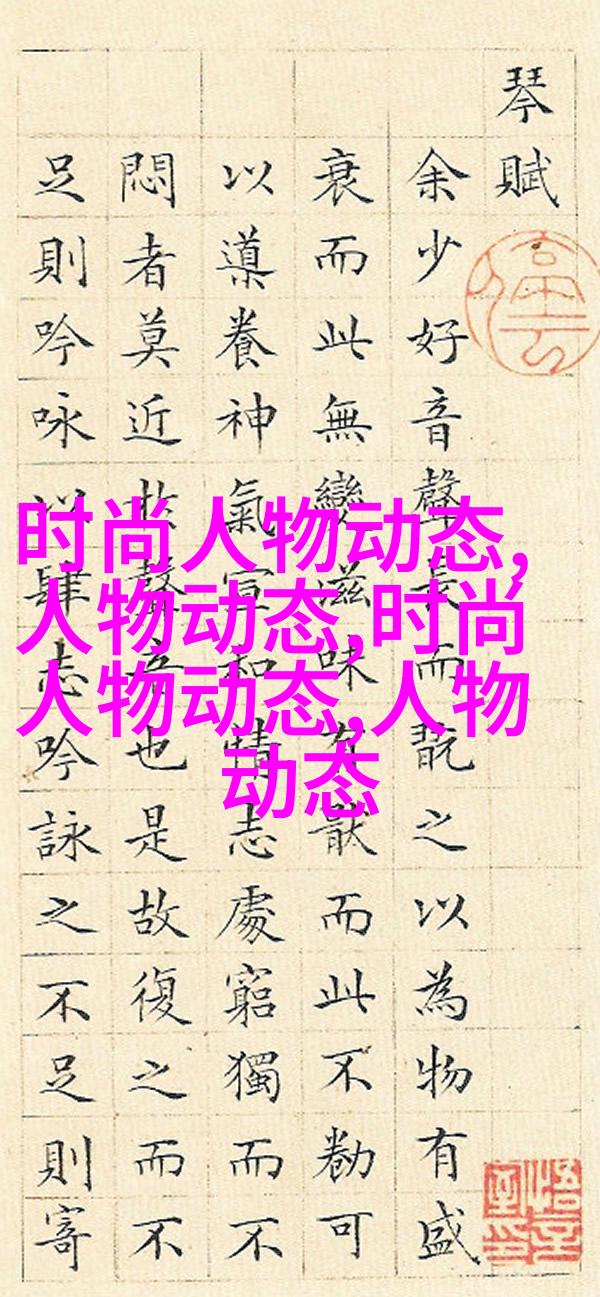 琴賦
余少好音聲長而翫之以為物有盛
衰而此無變滋味有猒而此不勌可
以導養神氣宣和情志處窮獨而不
悶者莫近扵聲音也是故復之而不
足則吟咏以肆志吟詠之不足則寄
时尚人物动态,
人物动态,时尚
人物动态,人物
动态